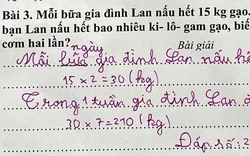 Bài 3. Mỗi bữa gia đình Lan nấu hết 15 kg gạo.
bạn Lan nấu hết bao nhiêu ki- lô- gam gạo, biế
cơm hai lần?
Bài giải
ngày
Mỗi bữa gia đình Lan nấu hế
15 x 2 = 30 (kg)
Trong 1 tuần gia đình Lan
30 x 7 = 210 (kg)
Đáp số: